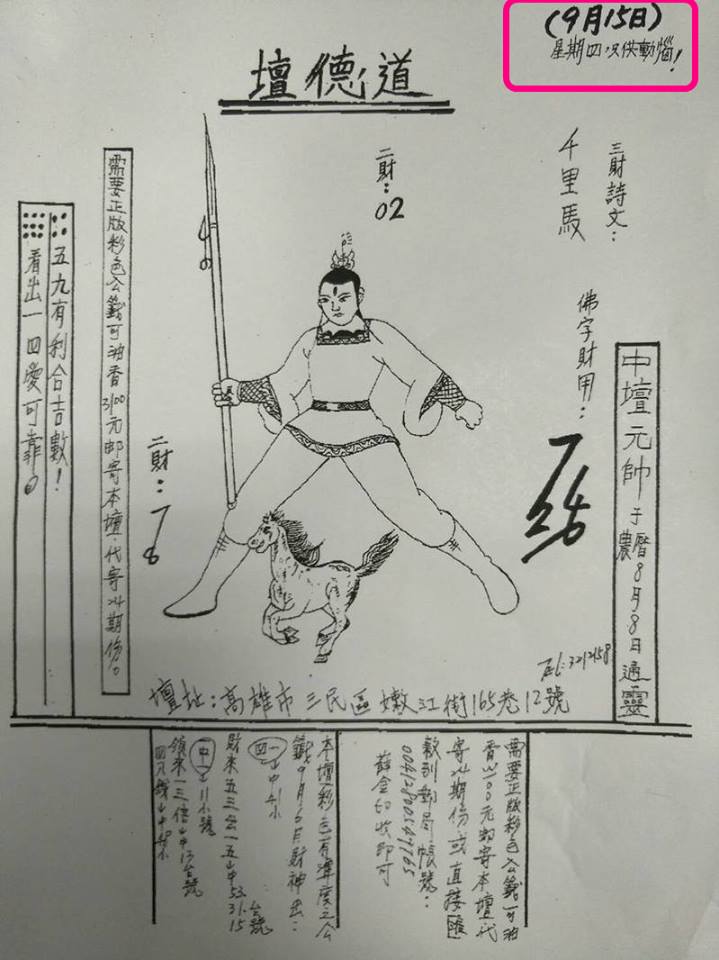 (9月15日)
星期四,只供動惱!
道德壇
三財詩文:
千里馬
佛字財用:
二財:
02
二財:
78
中壇元帥于農曆8月8日通靈
需要正版彩色公籤可油香3100元郵寄本壇.代寄24期份。
五九有利合吉數!
看出一四愛可靠。
TEL:3212158
壇址:高雄市三民區嫩江街165巷12號
需要正版彩色公籤可油
香3100元郵寄本壇.代
寄24期份或直接匯
款到郵局帳號:
薛金
收即可
本壇彩色有準度之公
籤9月6日財神出:
一四↓中41小
財來五三公一五↓中53.31.15台號
中↓11小號
領來一三倍↓中13台號